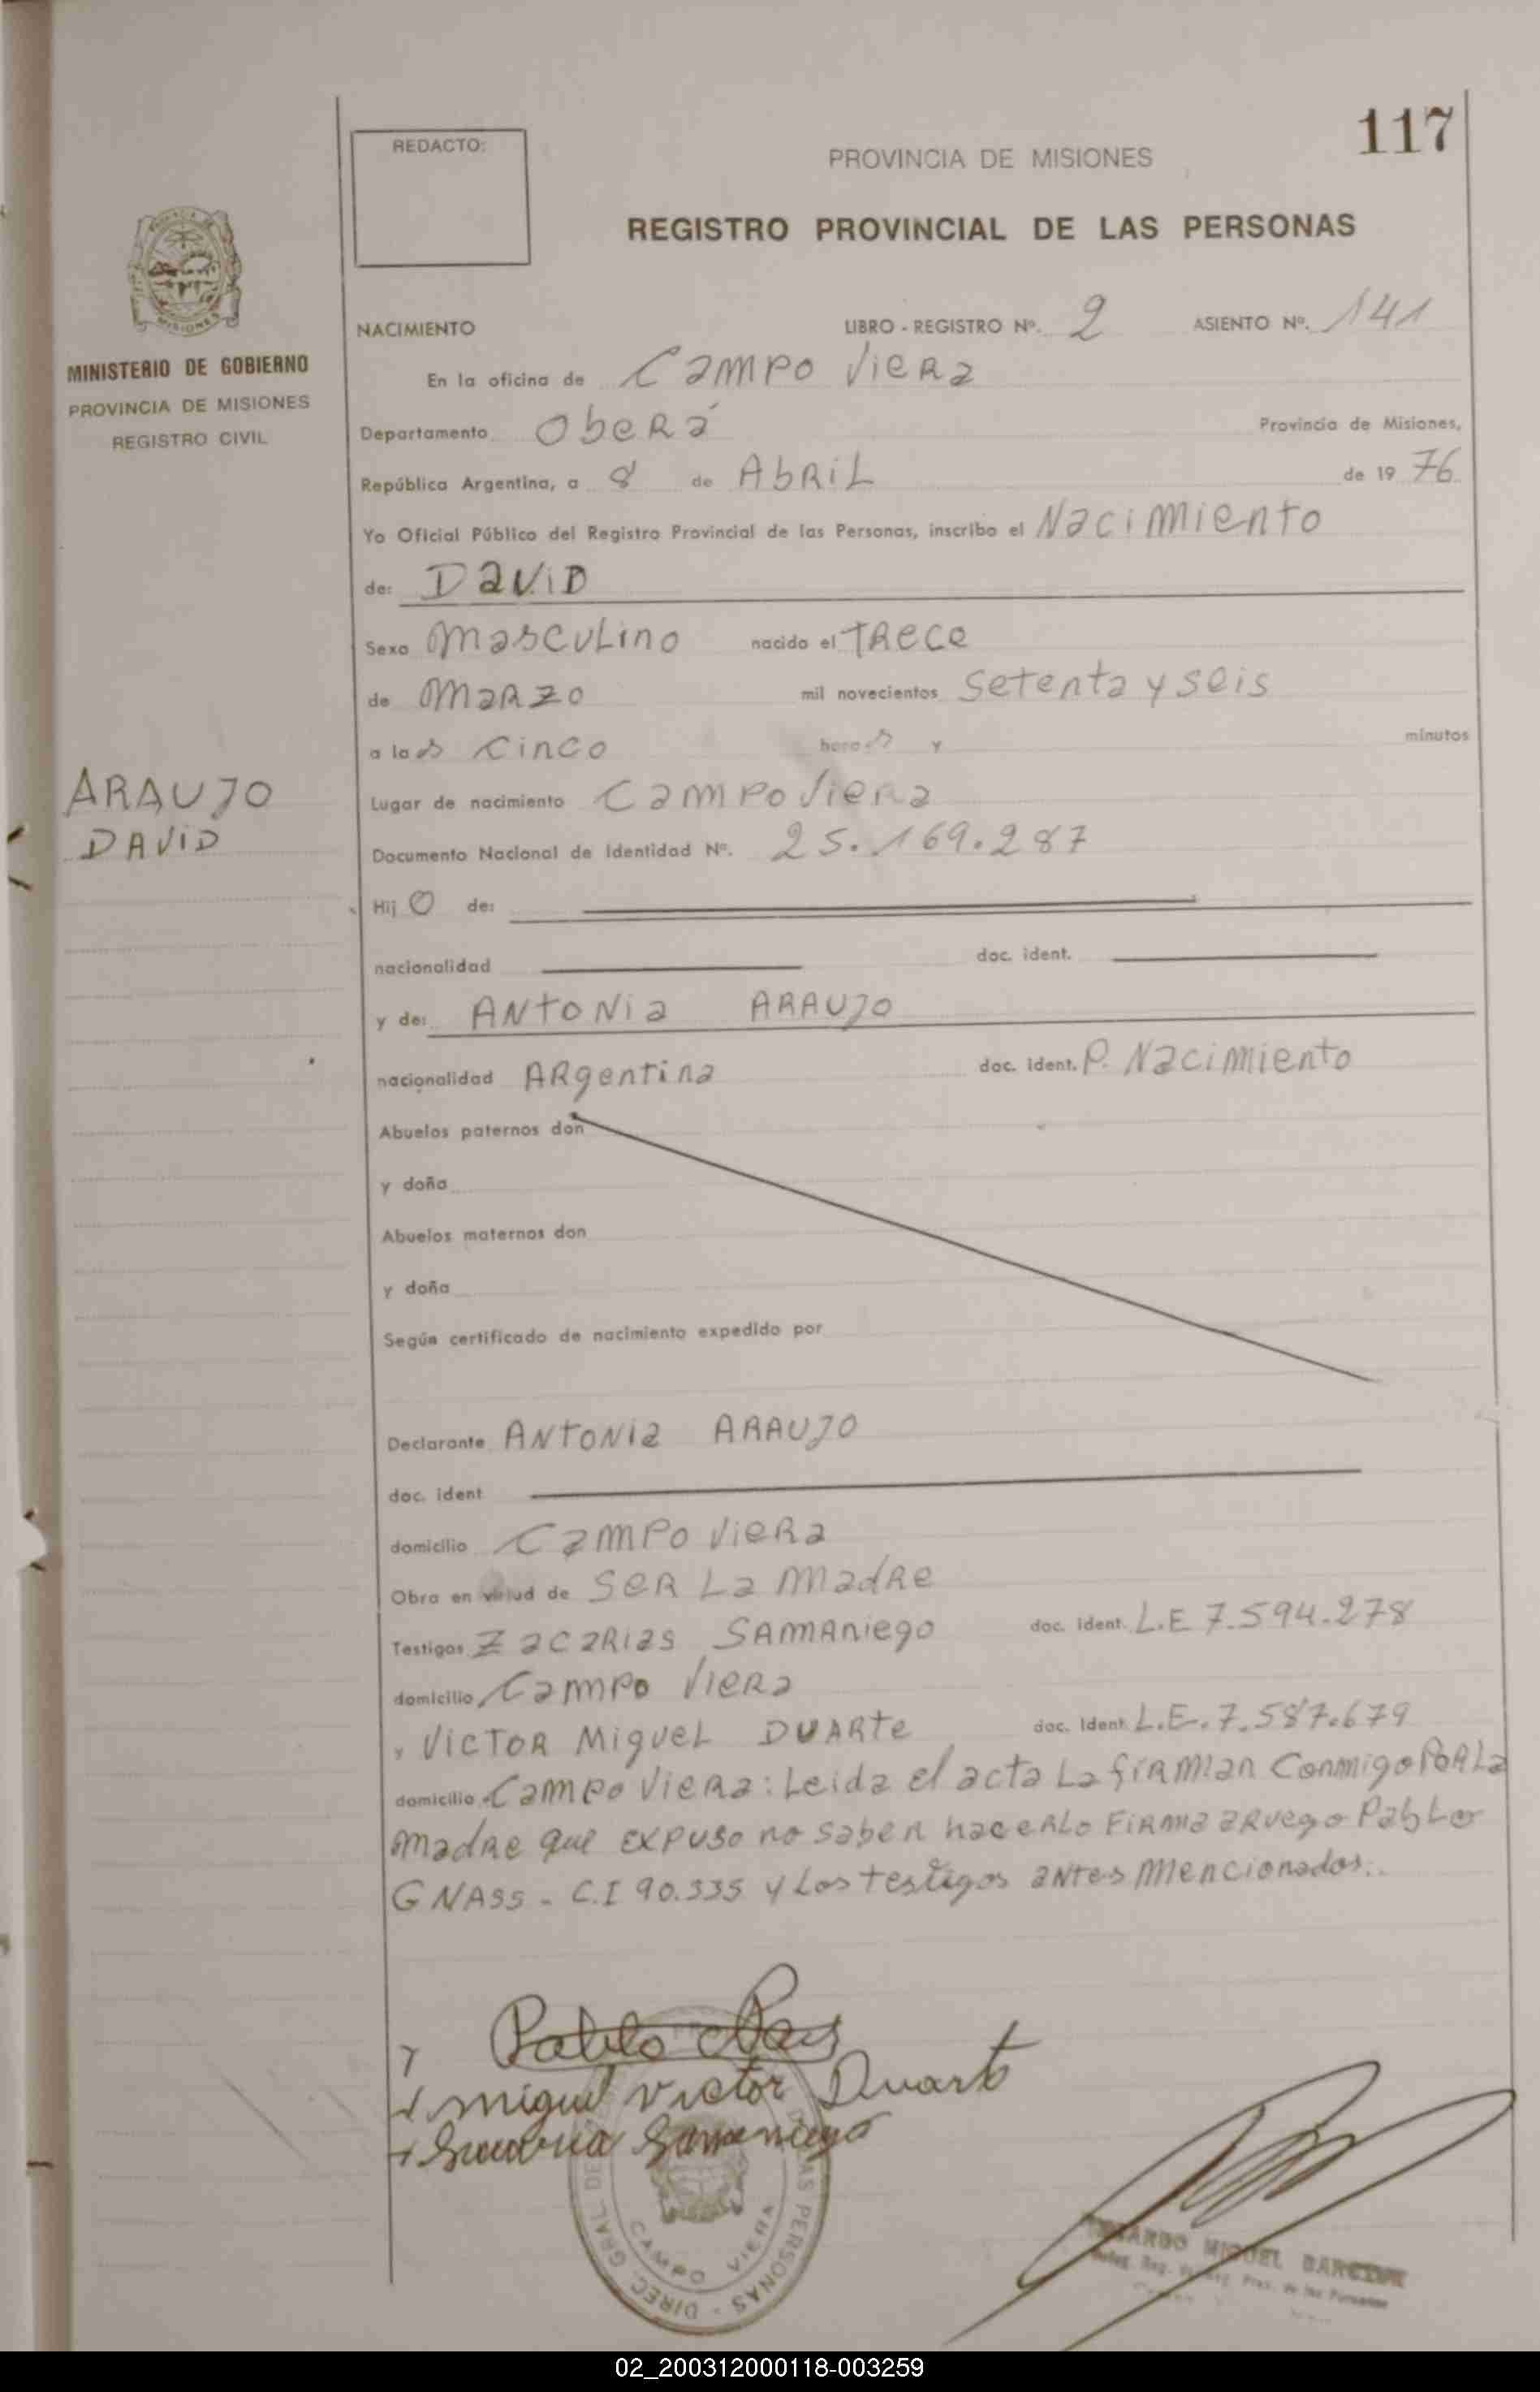 117
REDACTO:
PROVINCIA DE MISIONES
REGISTRO PROVINCIAL DE LAS PERSONAS
MISIONES
MINISTERIO DE GOBIERNO
PROVINCIA DE MISIONES
REGISTRO CIVIL
NACIMIENTO LIBRO - REGISTRO Nº. 2 ASIENTO Nº. 141
En la oficina de Campo Viera
Departamento Oberá Provincia de Misiones,
República Argentina, a 8 de Abril de 19 76
Yo Oficial Público del Registro Provincial de las Personas, inscribo el Nacimiento
de: David
Sexo Masculino nacido el Trece
de Marzo mil novecientos Setenta y seis
a las Cinco horas y minutos
ARAUJO
DAVID
Lugar de nacimiento Campo Viera
Documento Nacional de Identidad Nº. 25.169.287
Hij o de:
nacionalidad doc. ident.
y de: Antonia ARAUJO
nacionalidad Argentina doc. ident. P. Nacimiento
Abuelos paternos don
y doña
Abuelos maternos don
y doña
Según certificado de nacimiento expedido por
Declarante Antonia ARAUJO
doc. ident
domicilio Campo Viera
Obra en virtud de Ser La Madre
Testigos Zacarias SAMAniego doc. ident. L.E 7.594.278
domicilio Campo Viera
y Victor Miguel DUARTE doc. Ident. L.E. 7.587.679
domicilio Campo Viera: Leida el acta La firman Conmigo PoR La
Madre que expuso no saber hacerlo Firma aruego Pablo
GNASS - C.I 90.335 y Los testigos antes Mencionados.
Pablo
Miguel Victor Duarte
Samaniego
DIREC. GRAL DE PERSONAS
CAMPO VIERA
MIGUEL